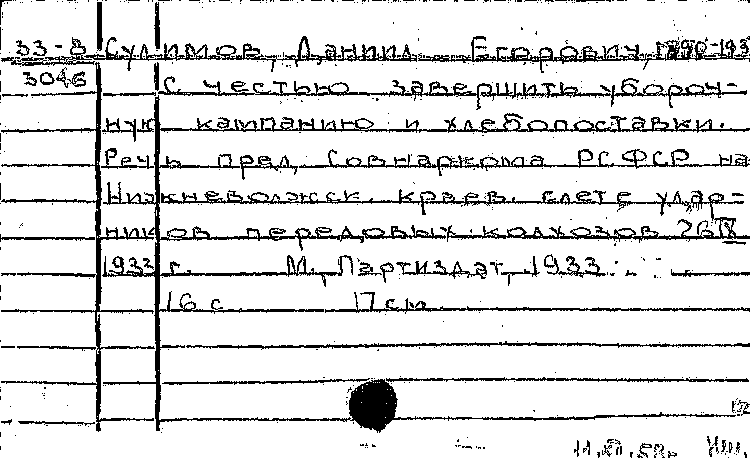 33-8 Сулимов, Даниил Егорович, 1890-193
3046 С честью завершить убороч-
ную кампанию и хлебопоставки.
Речь пред. Совнаркома РСФСР на
Нижневолжск. краев. слете удар-
ников передовых колхозов 26 IX
1933 г. М., Партиздат, 1933.
16 с. 17 см